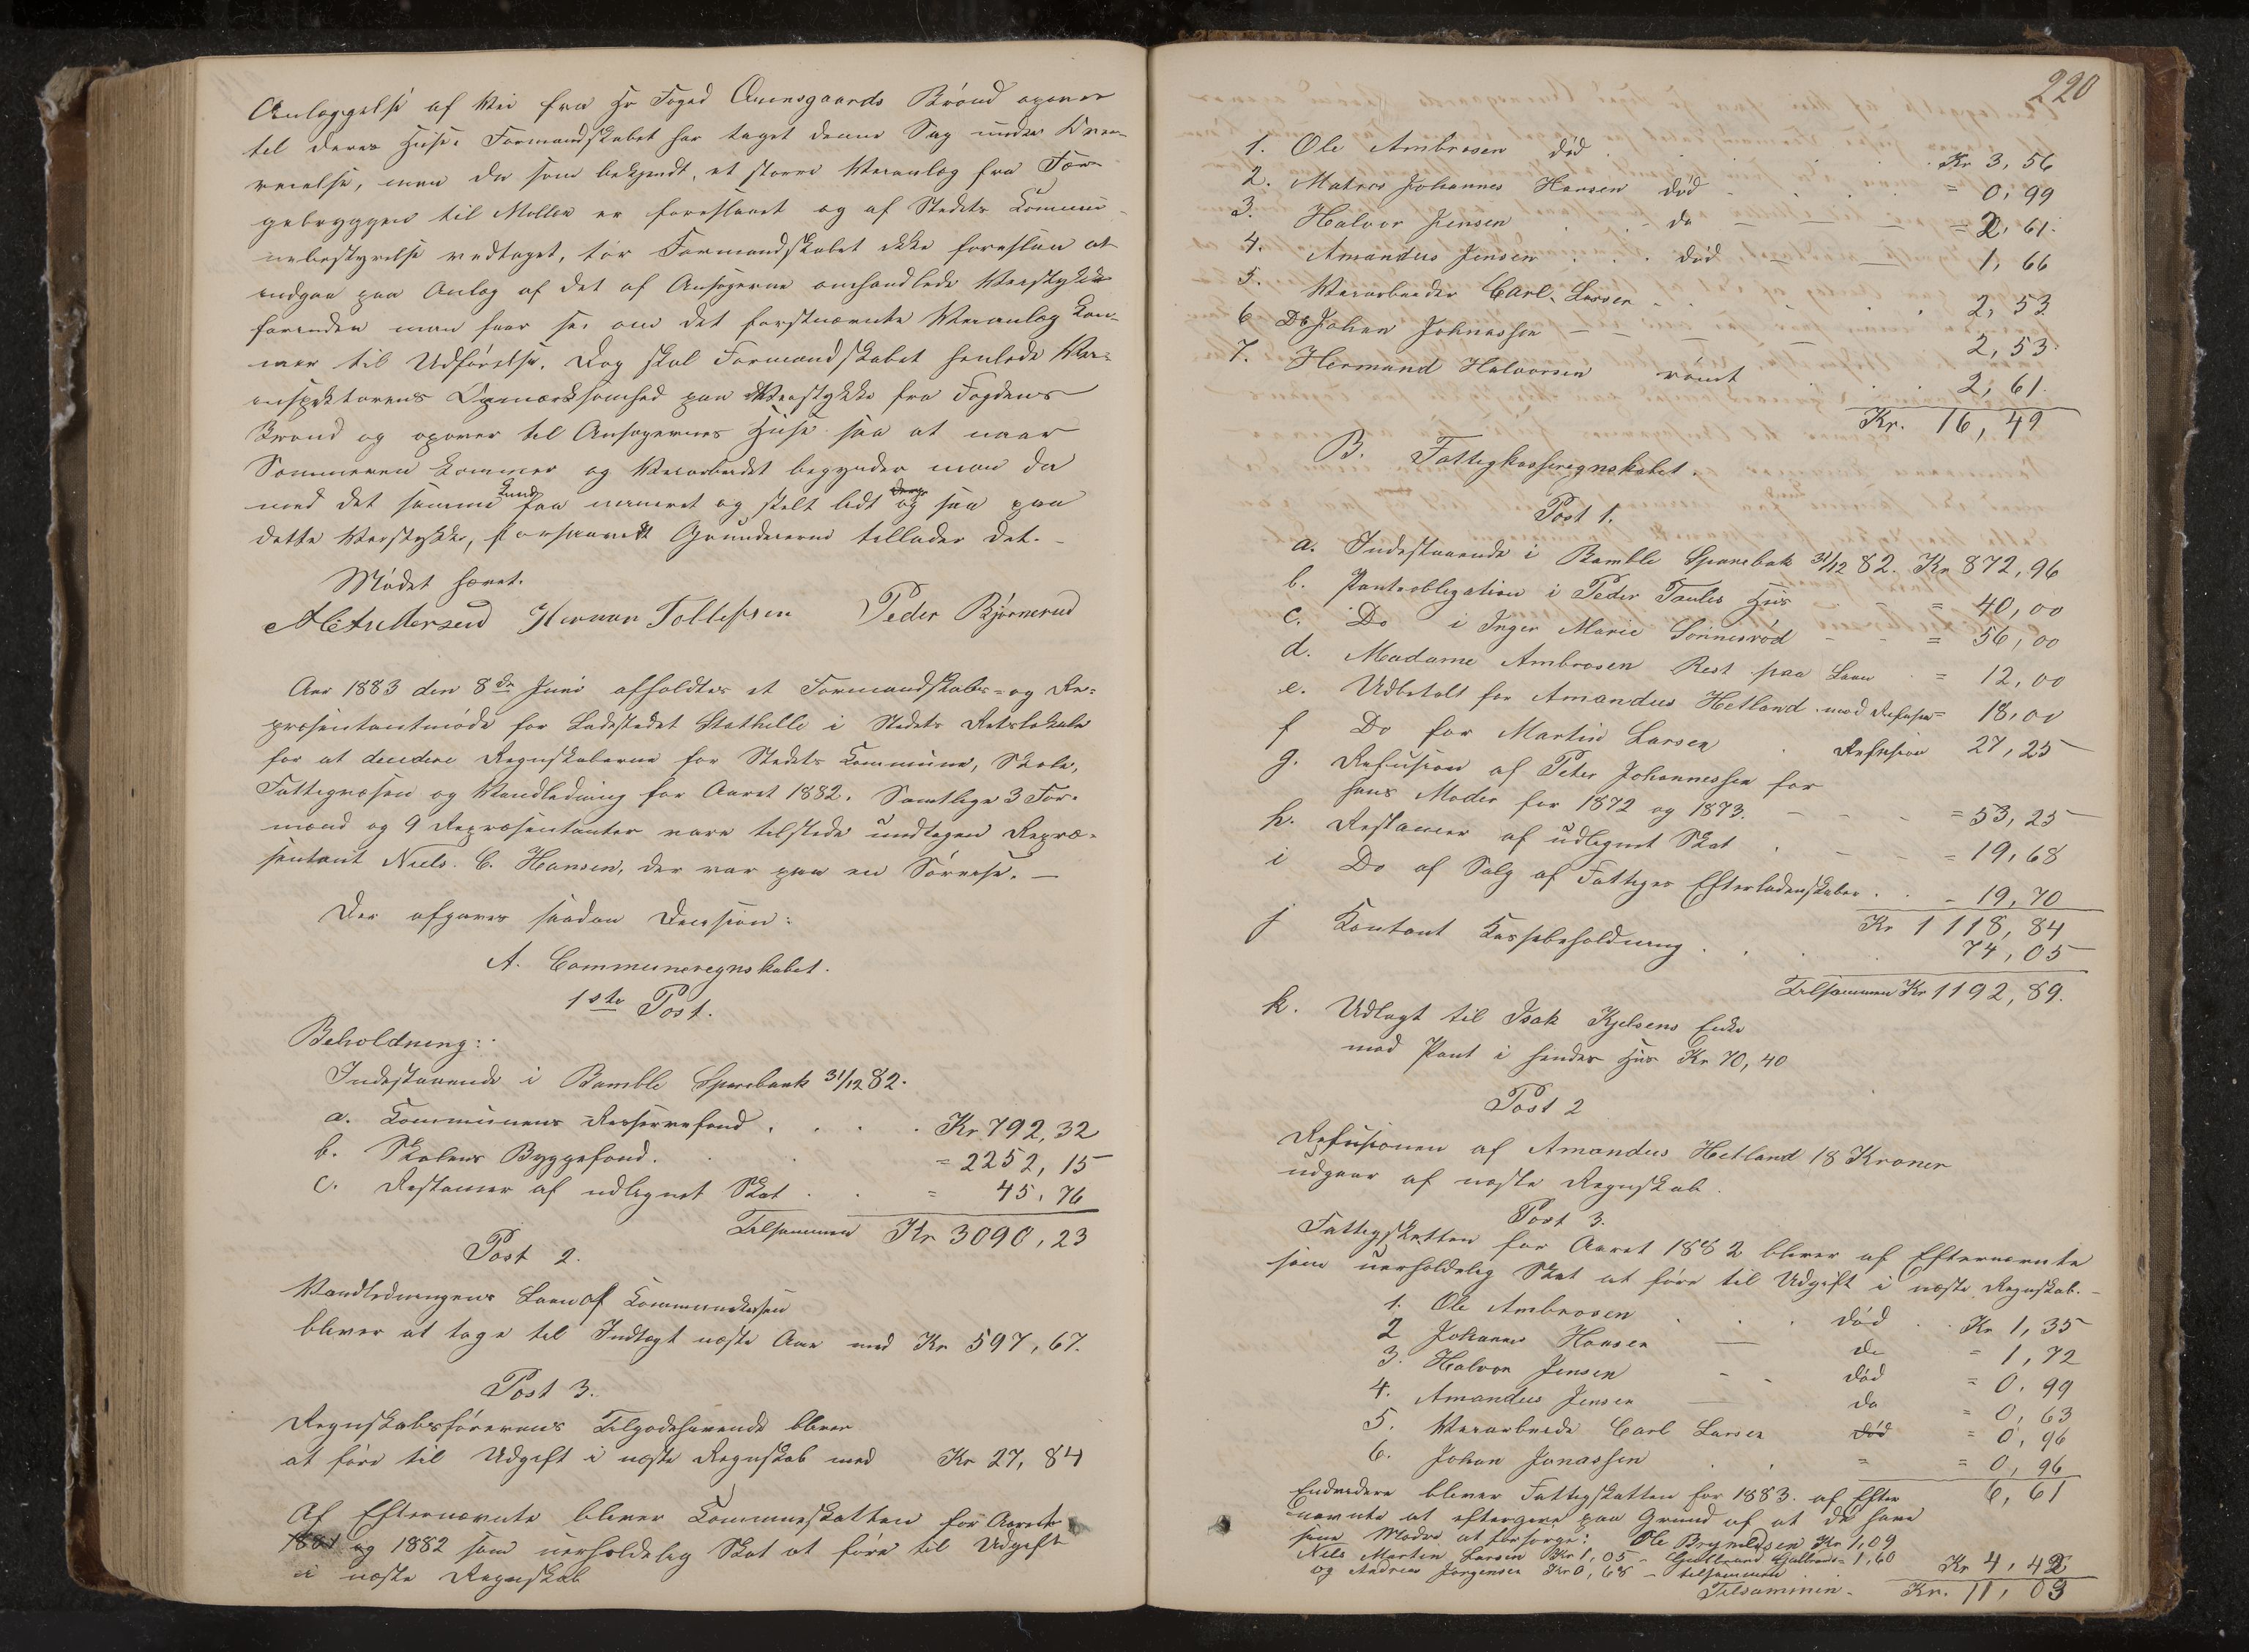 Anlæggelse af Vei fra Hr Foged Quensgaards Brönd opover
til deres Huse. Formandskabet har taget denne Sag under Over-
veielse, men da som bekjendt, et större Veianlæg fra Fær-
gebryggen til Möllen er foreslaaet og af Stedets Commu-
nebestyrelse vedtaget, tör Formandskabet ikke foreslaa at
indgaa paa Anlæg af det af Ansögerne omhandlede Veistykke
forinden man faar se, om det förstnævnte Veianlæg kom-
mer til Udförelse. Dog skal Formandskabet henlede Vei-
inspektörens Opmærksomhed paa Veistykke fra Fogdens
Brönd og opover til Ansögernes Huse saa at naar
Sommeren kommer og Veiarbeidet begynder man da
med det samme kunde faa mineret og stelt lidt og saa paa
dette Veistykke, forsaavidt Grundeierne tillader det. -
Mödet hævet.
A C Andersen Herman Tollefsen Peder Björnerud
Aar 1883 den 8de Juni afholdtes et Formandskabs- og Re-
præsentantmöde for Ladestedet Stathelle i Stedets Retslokale
for at decidere Regnskaberne for Stedets Commune, Skole,
Fattigvæsen og Vandledning for Aaret 1882. Samtlige 3 For-
mænd og 9 Repræsentanter vare tilstede undtagen Repræ-
sentant Niels C. Hansen, der var paa en Söreise. -
Der afgaves saadan Decision:
A. Communeregnskabet.
1ste Post.
Beholdning:
Indestaaende i Bamble Sparebank 31/12 82.
a. Communens Reservefond . . . . Kr 792,32
b. Skolens Byggefond . . = 2252,15
c. Restancer af udlignet Skat . . = 45,76
Tilsammen Kr 3090,23
Post 2.
Vandledningens Laan af Communekassen
bliver at tage til Indtægt næste Aar med Kr 597,67.
Post 3.
Regnskabsförerens Tilgodehavende bliver
at före til Udgift i næste Regnskab med Kr 27,84
Af Efternævnte bliver Communeskatten for Aarete
1881 og 1882 som uerholdelig Skat at före til Udgift
i næste Regnskab
220
1. Ole Ambrosen död . . . . Kr 3,56
2. Matros Johannes Hansen död - . . = 0,99
3. Halvor Jensen . - do - - - = 2,61.
4. Amandus Jensen . . . död - - 1,66
5. Veiarbeider Carl Larsen - . . . 2,53
6 Do Johan Johnassen - - - - 2,53
7. Hermand Halvorsen römt . . . 2,61.
Kr. 16,49
B. Fattigkasseregnskabet.
Post 1.
a. Indestaaende i Bamble Sparebak 31/12 82. Kr 872,96
b. Panteobligation i Peder Taules Hus - - = 40,00
c. Do i Inger Marie Sönnesröd - - = 56,00
d. Madame Ambrosen Rest paa Laan . = 12,00
e. Udbetalt for Amandus Hetland mod Refusion = 18,00
f Do for Martin Larsen . Refusion 27,25
g. Refusion af Peter Johannessen for
hans Moder for 1872 og 1873. - - - = 53,25
h. Restancer af udlignet Skat . - - = 19,68
i Do af Salg af Fattiges Efterladenskaber . . - 19,70
Kr 1118,84
j Kontant Kassebeholdning . . . . 74,05
Tilsammen Kr 1192,89.
k. Udlagt til Isak Kjelsens Enke
mod Pant i hendes Hus Kr 70,40
Post 2
Refusionen af Amandus Hetland 18 Kroner
udgaar af næste Regnskab.
Post 3.
Fattigskatten for Aaret 1882 bliver af Efternævnte
som uerholdelig Skat at före til Udgift i næste Regnskab. -
1. Ole Ambrosen . . . död . . Kr 1,35
2 Johannes Hansen - do = 1,72
3. Halvor Jensen - - död = 0,99
4. Amandus Jensen - do = 0,63
5. Veiarbeide Carl Larsen död = 0,96
6. Johan Jonassen . . = = 0,96
6,61
Endvidere bliver Fattigskatten for 1883 af Efter
nævnte at eftergive paa Grund af at de have
sine Mödre at forsörge: Ole Brynildsen Kr 1,09
Nils Martin Larsen Kr 1,05 - Gulbrand Gulbrands = 1,60
og Andreas Jörgensen Kr 0,68 - tilsammen . Kr 4,42
Tilsammen - Kr. 11,03